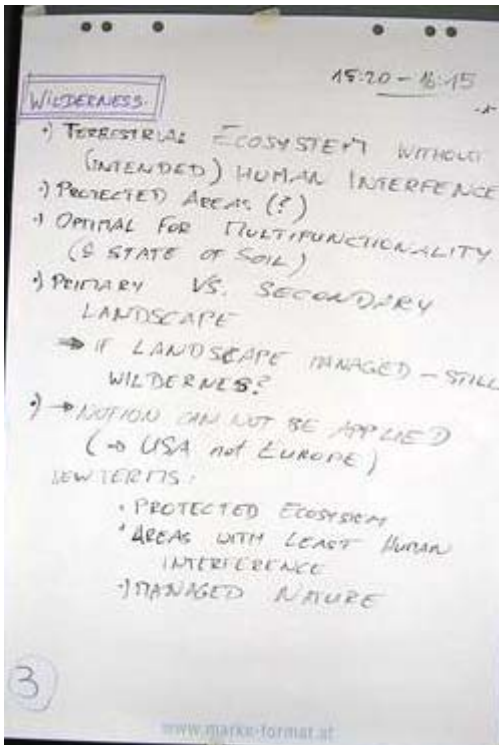 15:20 - 16:15
WILDERNESS.
•) TERRESTRIAL ECOSYSTEM WITHOUT
(INTENDED) HUMAN INTERFENCE
•) PROTECTED AREAS (?)
•) OPTIMAL FOR MULTIFUNCTIONALITY
(& STATE OF SOIL)
•) PRIMARY VS. SECONDARY
LANDSCAPE
➔ IF LANDSCAPE MANAGED – STILL
WILDERNES?
•) → NOTION CAN NOT BE APPLIED
(→ USA not EUROPE)
NEW TERMS:
• PROTECTED ECOSYSTEM
• AREAS WITH LEAST HUMAN
INTERFERENCE
•) MANAGED NATURE
3
www.marke-format.at